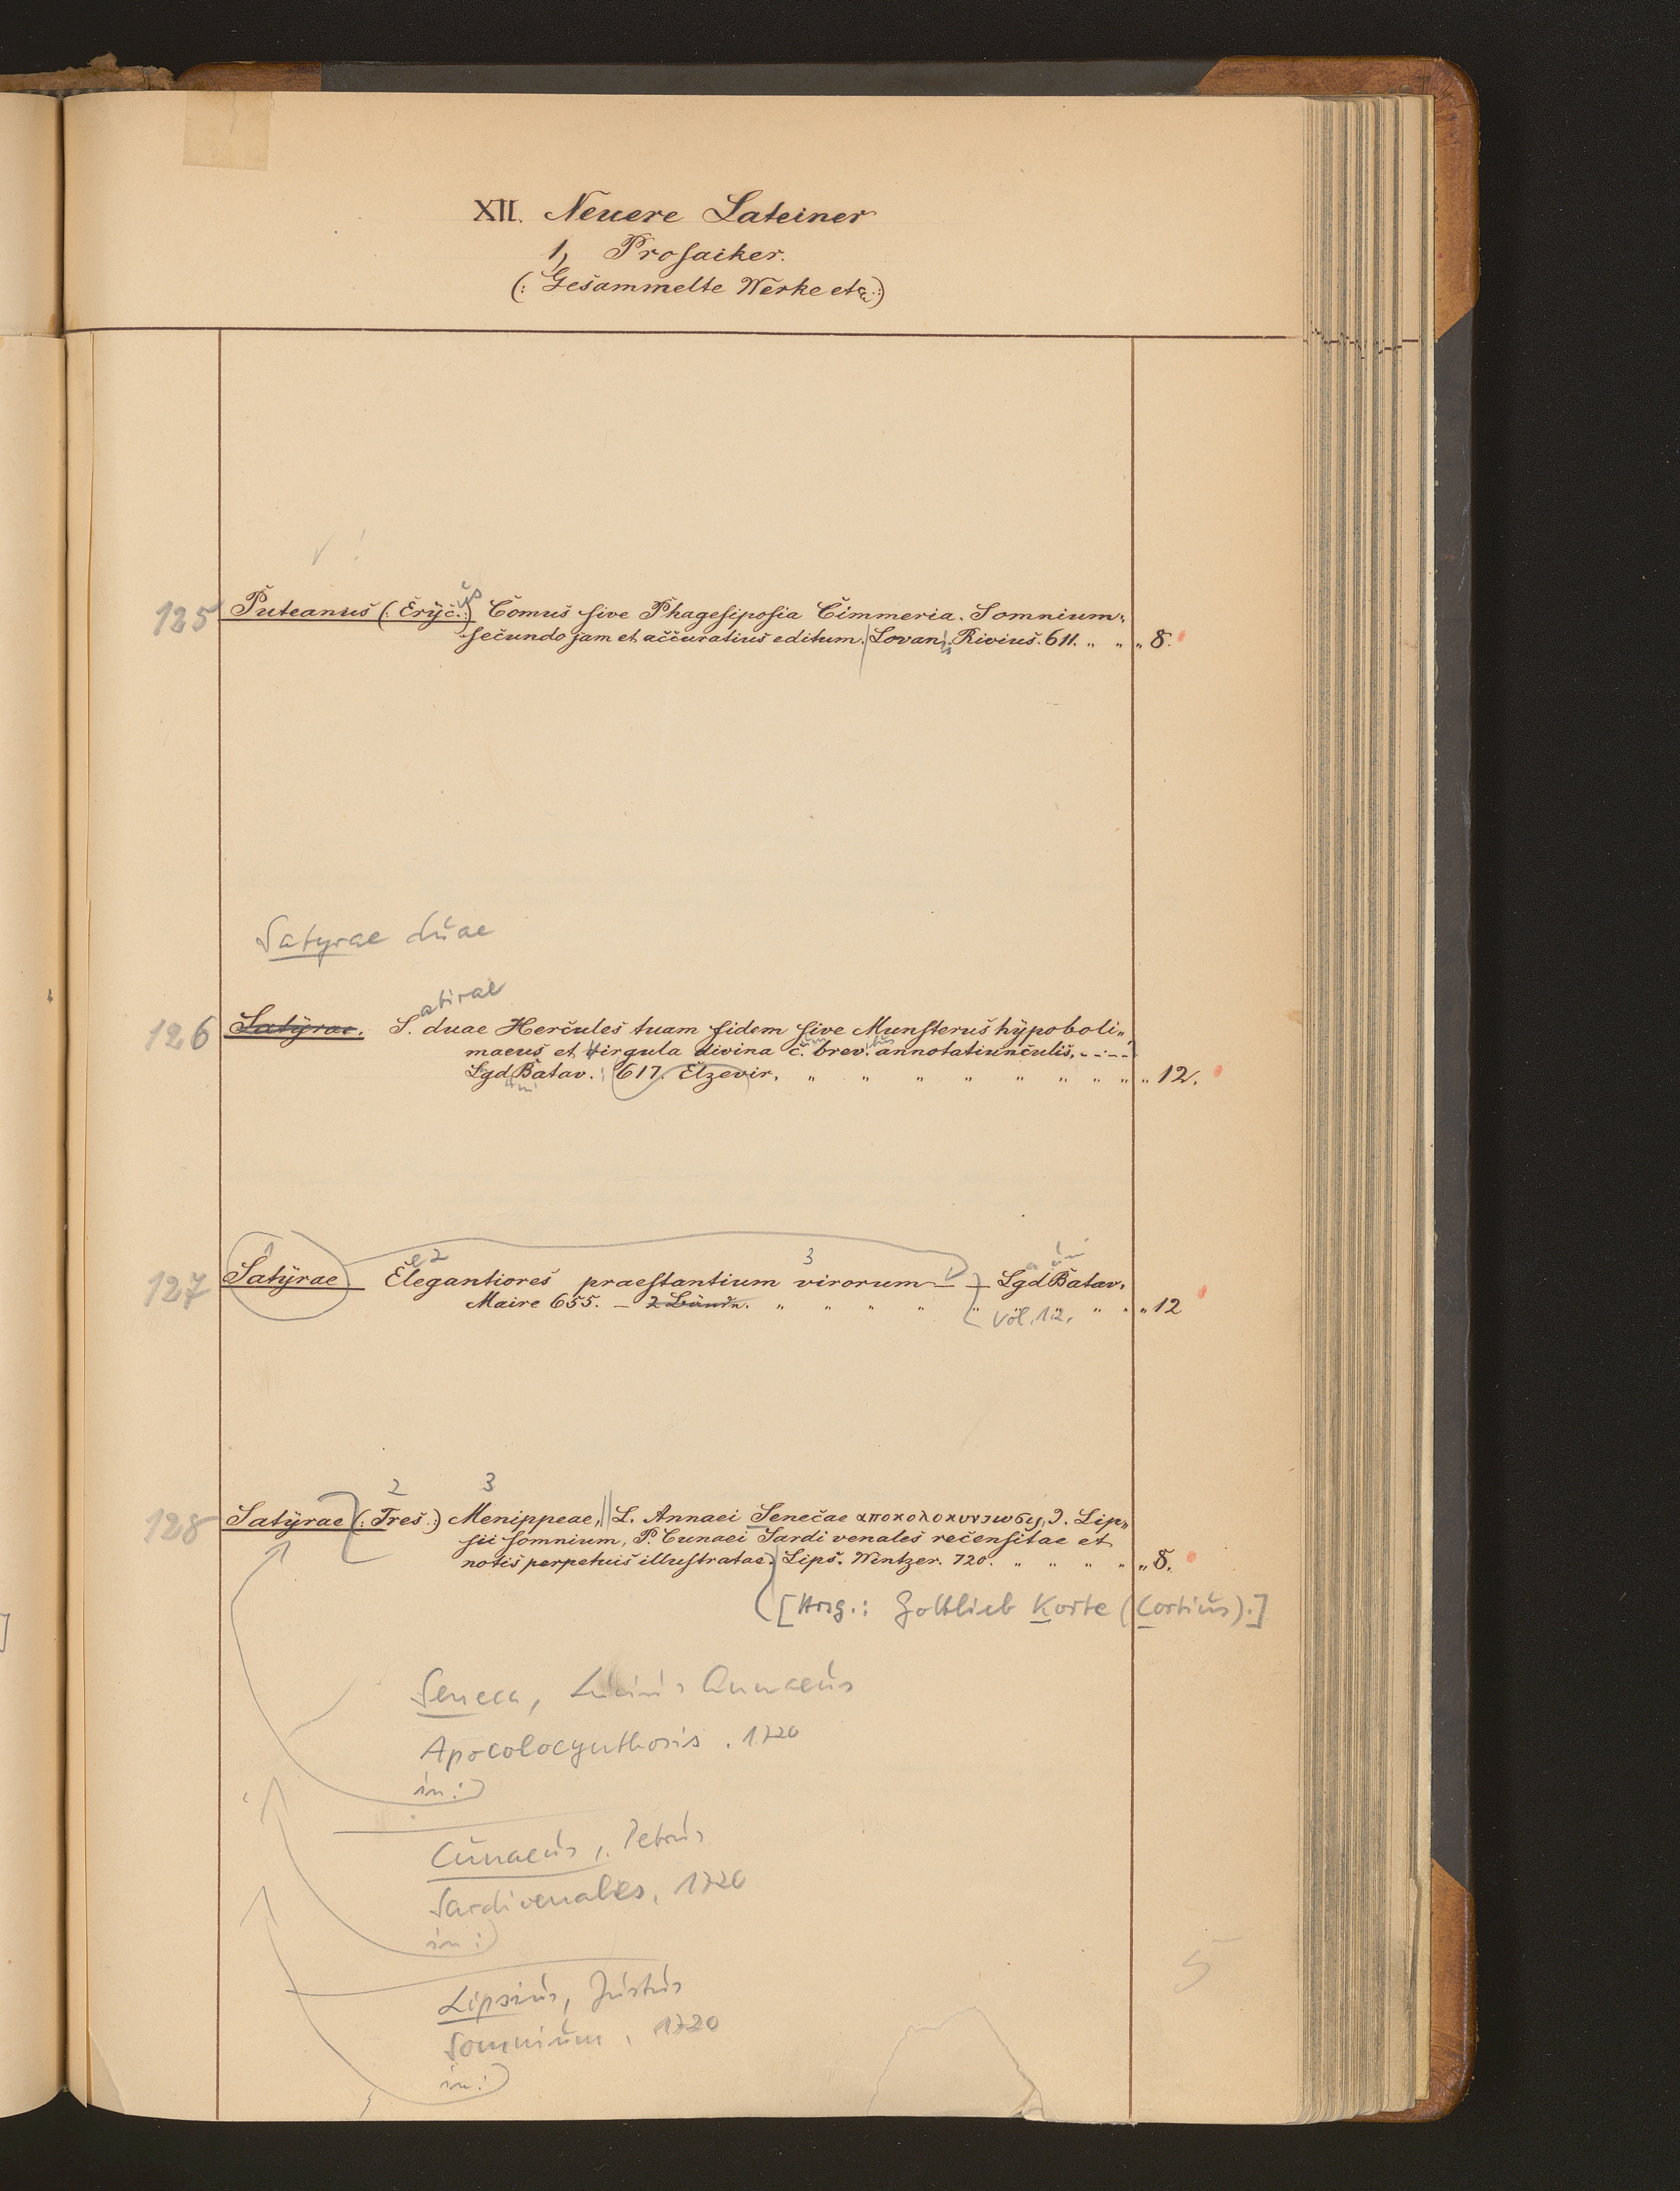 XII. Neuere Lateiner
1, Prosaiker.
(: Gesammelte Werke etc :)
125 Puteanus (: Eryc. :) us Comus sive Phagesiposia Cimmeria. Somnium
secundo jam et accuratius editum. Lovan. Rivius. 611. „ „ „ 8.
Satyrae duae
atirae
126 Satyrae. S. duae Hercules tuam fidem sive Munsterus hypoboli„
maeus et Virgula divina c. brev. annotatiunculis. - . - -
Lgd Batav. 617. Elzevir. „ „ „ „ „ „ „ „ „ 12.
e 2 3
127 Satyrae. Elegantiores praestantium virorum — — Lgd Batav.
Maire 655. — 2 Bände. „ „ „ „ „ „ „ „ „ 12
Vol. 1.2.
2 3
128 Satyrae (: Tres :) Menippeae, L. Annaei Senecae αποκολοκυντωσις, J. Lip„
sii somnium, P. Cunaei Sardi venales recensitae et
notis perpetuis illustratae. Lips. Wintzer. 720. „ „ „ „ „ 8.
[Hrsg.: Gottlieb Korte (Cortius).]
Seneca, Lucius Annaeus
Apocolocynthosis. 1720
in:
Cunaeus, Petrus
Sardi venales, 1720
in:
5
Lipsius, Justus
Somnium, 1720
in: